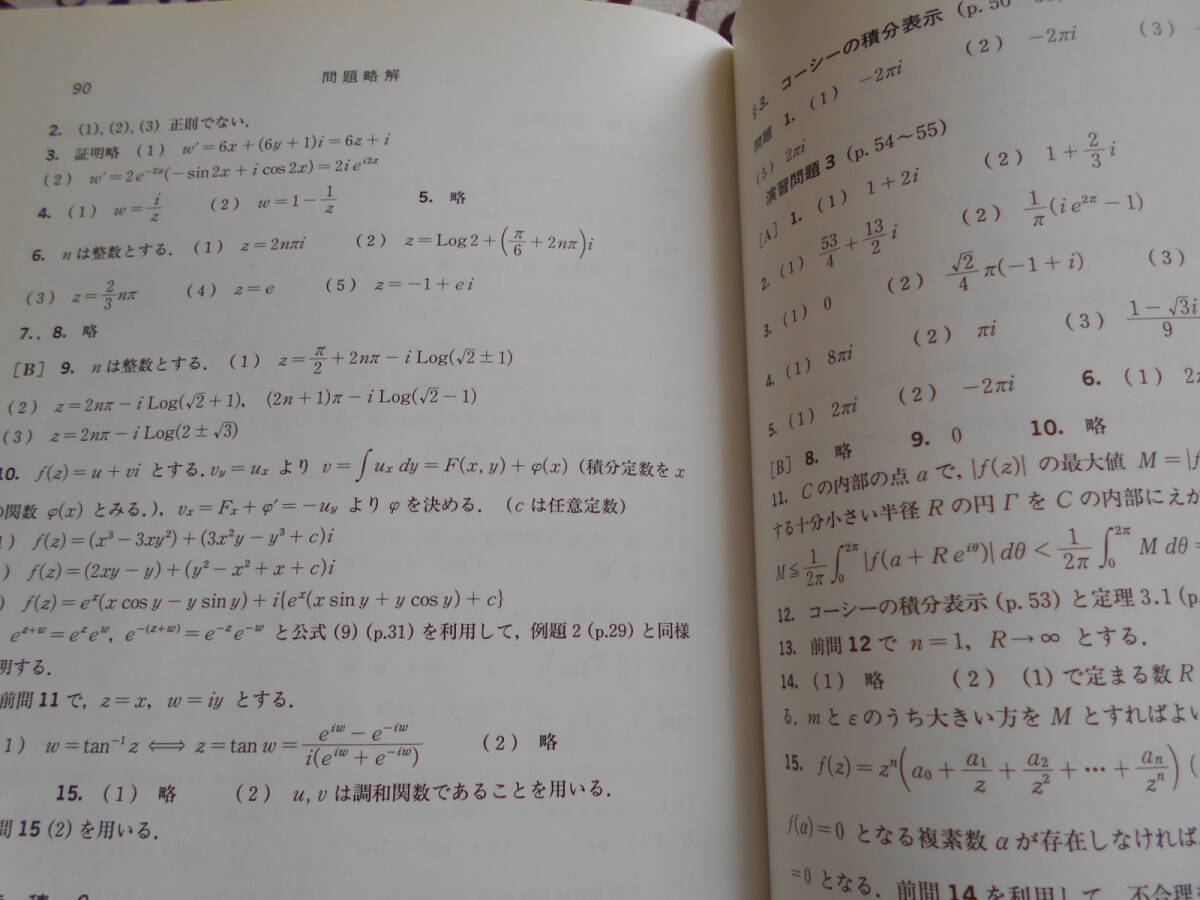 90 問題略解
2. (1), (2), (3) 正則でない.
3. 証明略 (1) w′=6x+(6y+1)i=6z+i
(2) w′=2e^{-2y}(-sin2x+i cos2x)=2i e^{i2z}
4. (1) w=i/z (2) w=1-1/z 5. 略
6. nは整数とする. (1) z=2nπi (2) z=Log2+(π/6+2nπ)i
(3) z=2/3nπ (4) z=e (5) z=-1+ei
7., 8. 略
[B] 9. nは整数とする. (1) z=π/2+2nπ-i Log(√2±1)
(2) z=2nπ-i Log(√2+1), (2n+1)π-i Log(√2-1)
(3) z=2nπ-i Log(2±√3)
10. f(z)=u+vi とする. v_y=u_x より v=∫u_x dy=F(x, y)+φ(x) (積分定数を x
の関数 φ(x) とみる.), v_x=F_x+φ′=-u_y より φ を決める. (c は任意定数)
1) f(z)=(x³-3xy²)+(3x²y-y³+c)i
) f(z)=(2xy-y)+(y²-x²+x+c)i
) f(z)=e^x(x cos y-y sin y)+i{e^x(x sin y+y cos y)+c}
e^{z+w}=e^z e^w, e^{-(z+w)}=e^{-z}e^{-w} と公式(9) (p.31) を利用して, 例題2 (p.29) と同様
明する.
前問11で, z=x, w=iy とする.
1) w=tan⁻¹z ⟺ z=tan w=(e^{iw}-e^{-iw})/(i(e^{iw}+e^{-iw})) (2) 略
15. (1) 略 (2) u, v は調和関数であることを用いる.
問15 (2) を用いる.
§3. コーシーの積分表示 (p.50
問題 1. (1) -2πi (2) -2πi (3)
(5) 2πi
演習問題3 (p.54〜55)
[A] 1. (1) 1+2i (2) 1+2/3 i
2. (1) 53/4+13/2 i (2) 1/π(i e^{2π}-1)
3. (1) 0 (2) √2/4 π(-1+i) (3)
4. (1) 8πi (2) πi (3) 1-√3i/9
5. (1) 2πi (2) -2πi 6. (1)
[B] 8. 略 9. 0 10. 略
11. Cの内部の点 a で, |f(z)| の最大値 M=|f
する十分小さい半径 R の円 Γ を C の内部にえが
M≦1/2π ∫₀^{2π}|f(a+R e^{iθ})| dθ<1/2π ∫₀^{2π} M dθ=
12. コーシーの積分表示 (p.53) と定理3.1 (p.
13. 前問12で n=1, R→∞ とする.
14. (1) 略 (2) (1)で定まる数 R
る. m と ε のうち大きい方を M とすればよい
15. f(z)=zⁿ(a₀+a₁/z+a₂/z²+⋯+aₙ/zⁿ) (
f(α)=0 となる複素数 α が存在しなければ,
=0 となる. 前問14を利用して, 不合理